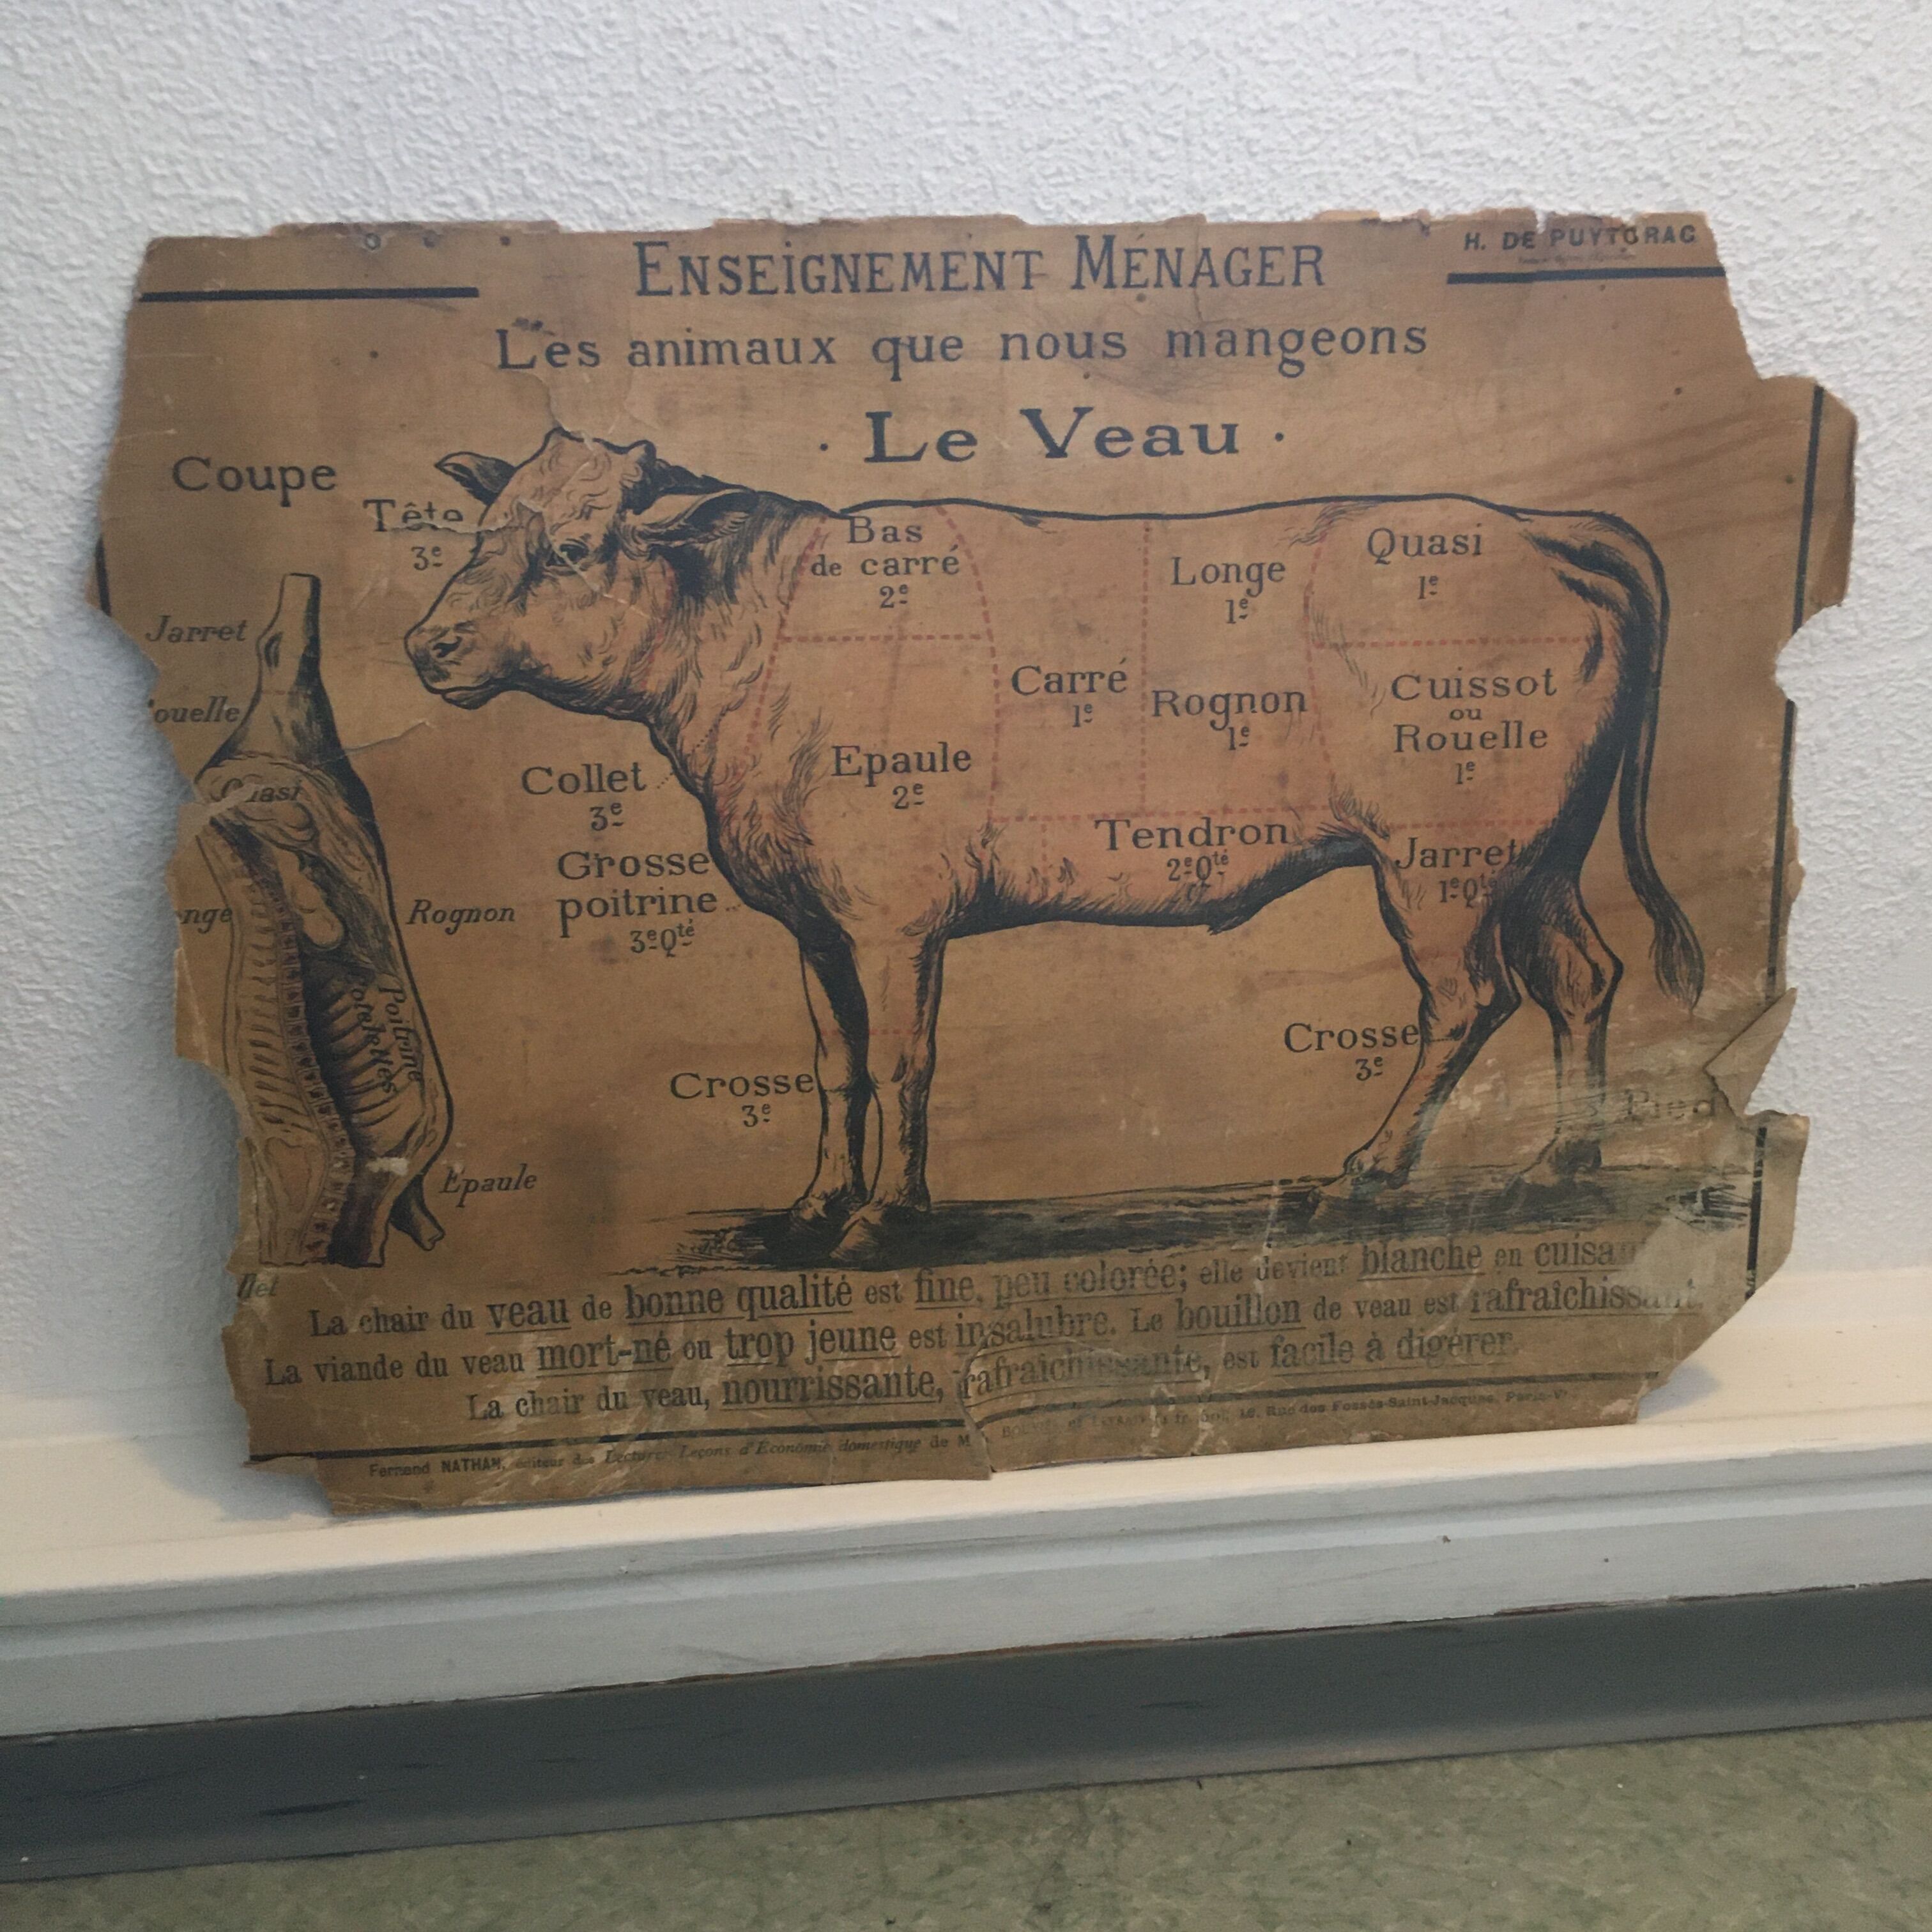 H. DE PUYTORAC
ENSEIGNEMENT MÉNAGER
Les animaux que nous mangeons
· Le Veau ·
Coupe
Tête
3e
Bas
de carré
2e
Longe
1e
Quasi
1e
Jarret
ouelle
Quasi
nge
Rognon
Poitrine
Côtelettes
Epaule
llet
Carré
1e
Rognon
1e
Cuissot
ou
Rouelle
1e
Collet
3e
Epaule
2e
Grosse
poitrine
3e Qté
Tendron
2e Qté
Jarret
1e Qté
Crosse
3e
Crosse
3e
Pied
La chair du veau de bonne qualité est fine, peu colorée; elle devient blanche en cuisan
La viande du veau mort-né ou trop jeune est insalubre. Le bouillon de veau est rafraîchissant.
La chair du veau, nourrissante, rafraîchissante, est facile à digérer.
Fernand NATHAN, éditeur des Lectures-Leçons d'Économie domestique de M 18, Rue des Fossés-Saint-Jacques, Paris-Ve